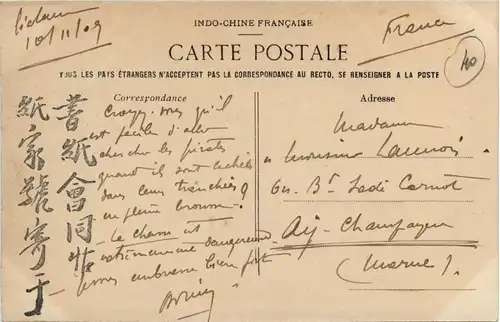 10/11/09
INDO-CHINE FRANÇAISE
France
CARTE POSTALE
40
TOUS LES PAYS ÉTRANGERS N'ACCEPTENT PAS LA CORRESPONDANCE AU RECTO, SE RENSEIGNER A LA POSTE
Correspondance
Croyez-vous qu'il
est facile d'aller
chercher les pirates
quand ils sont cachés
dans leurs tranchées
en pleine brousse ?
Le chasse est
extrêmement dangereuse
vous embrasse bien fort
書紙會同
紙家號寄于
Adresse
Madame
Monsieur Launois
Bd Sadi Carnot
Ay-Champagne
(Marne).